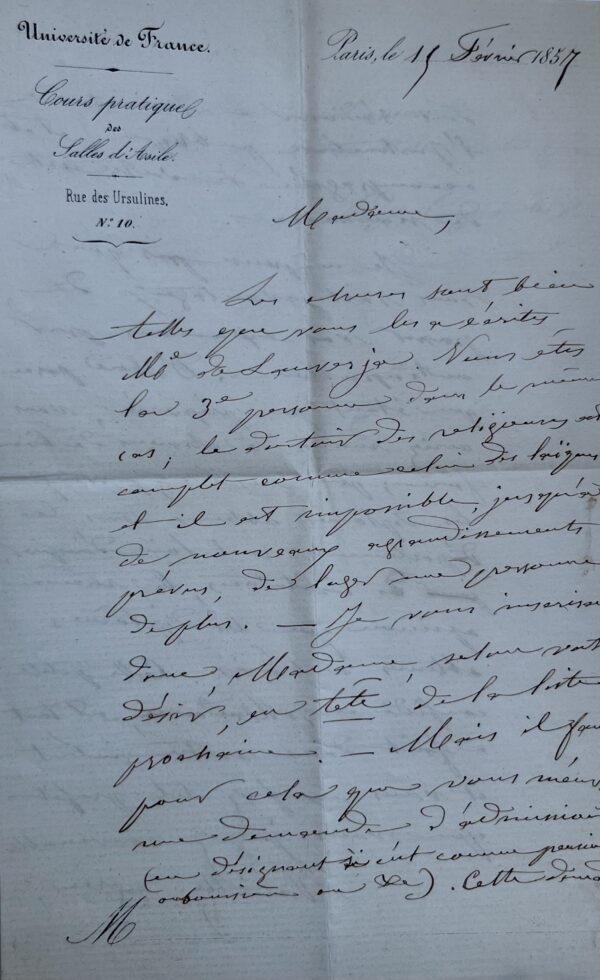 Université de France.
Paris, le 15 Février 1857
Cours pratique
des
Salles d'Asile.
Rue des Ursulines,
N.º 10.
Madame,
Les choses sont bien
telles que vous les a écrites
de . Vous êtes
la 3e personne dans le même
cas ; le dortoir des religieuses est
complet comme celui des laïques
et il est impossible, jusqu'à
de nouveaux agrandissements
prévus, de loger une personne
de plus. — Je vous inscris
donc, Madame, selon votre
désir, en tête de la liste
prochaine. — Mais il faut
pour cela que vous
une demande d'admission
(en désignant si c'est comme
ou en ). Cette
M